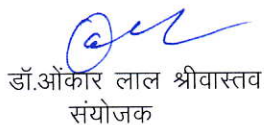 डॉ.ओंकार लाल श्रीवास्तव
संयोजक